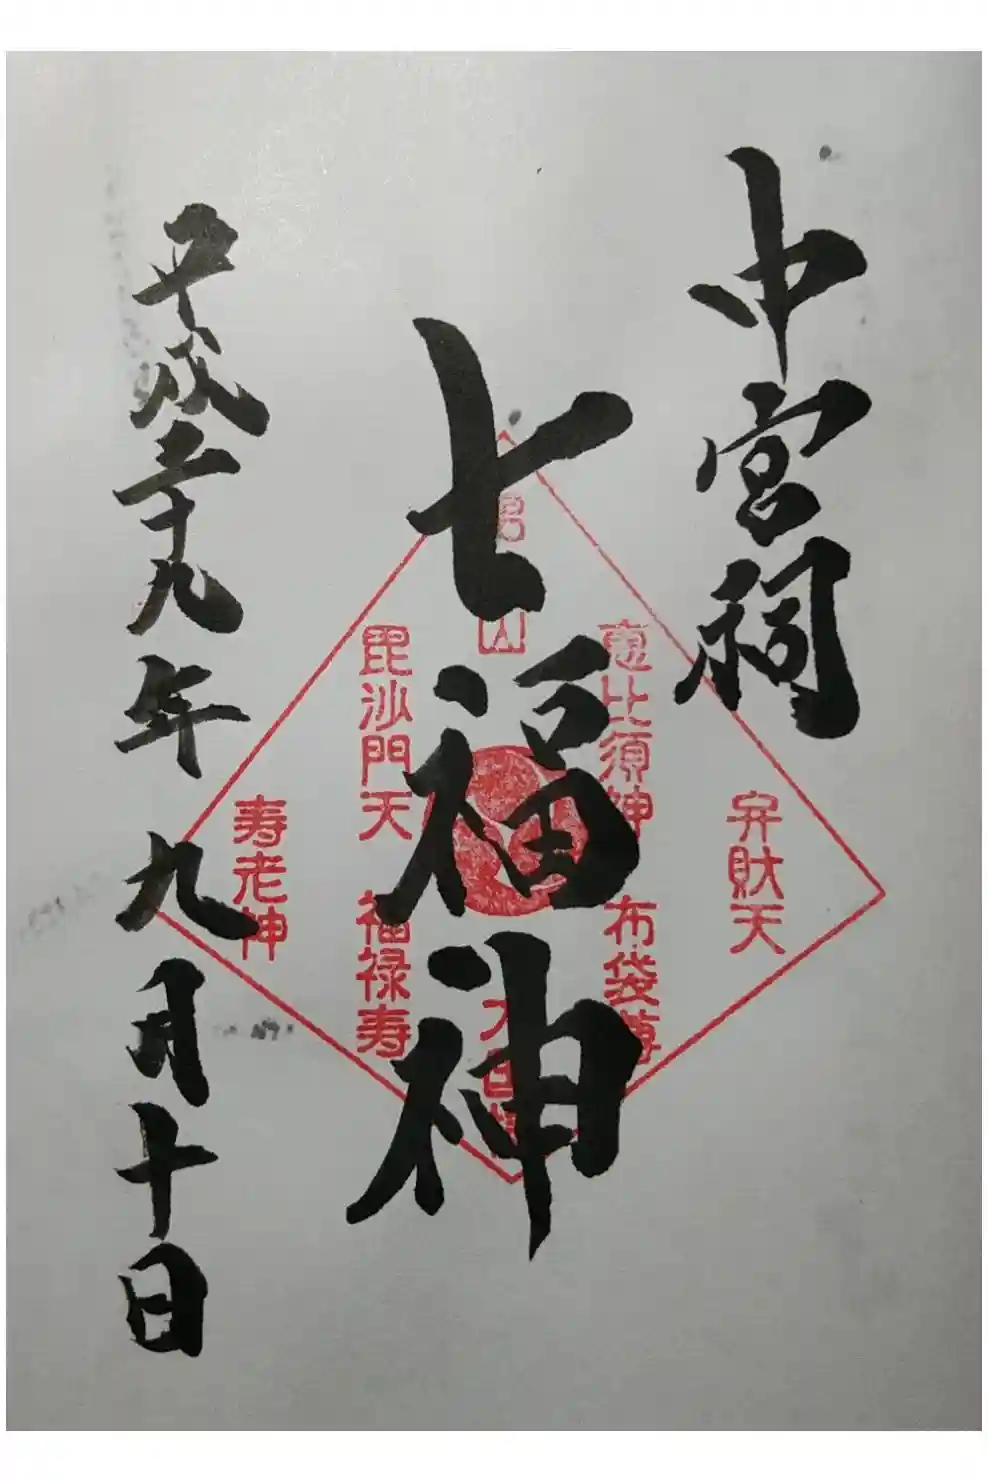 中宮祠
七福神
平成二十九年九月十日
弁財天
恵比須神
布袋尊
山
毘沙門天
福禄寿
寿老神